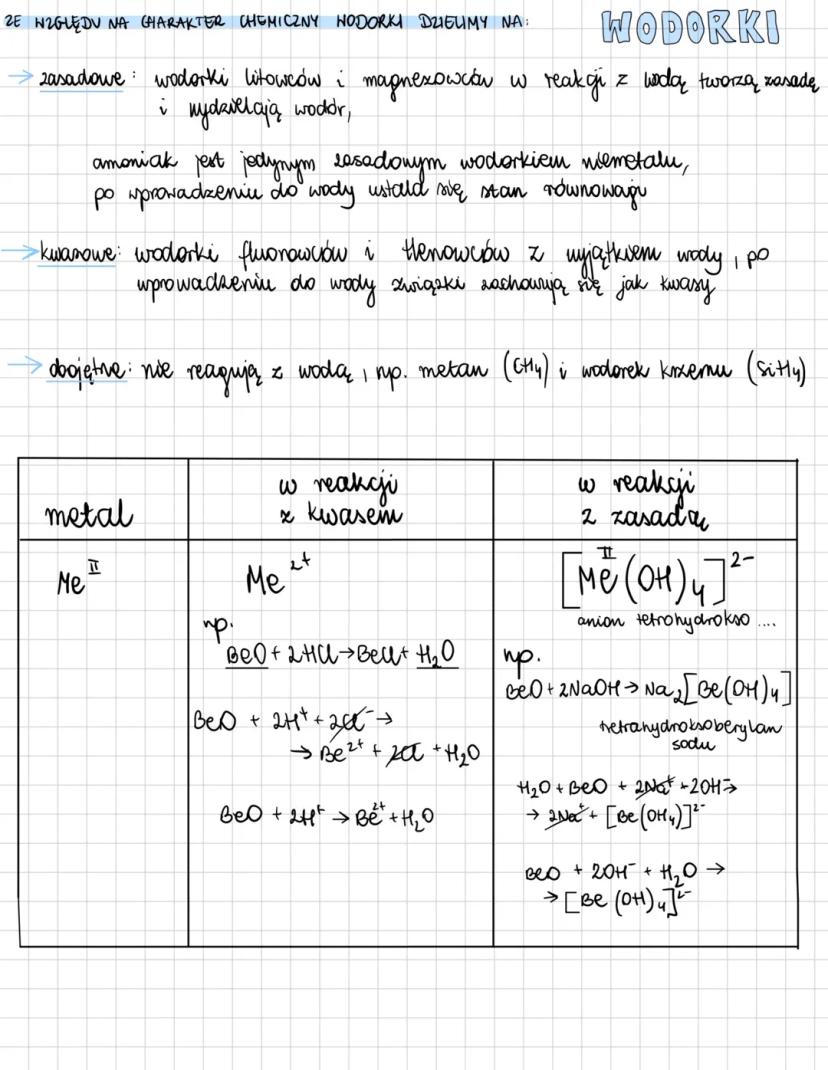 ZE WZGLĘDU NA CHARAKTER CHEMICZNY WODORKI DZIELIMY NA:
WODORKI
→ zasadowe: wodorki litowców i magnezowców w reakcji z wodą tworzą zasadę
i wydzielają wodór,
amoniak jest jedynym zasadowym wodorkiem niemetalu,
po wprowadzeniu do wody ustala się stan równowagi
→ kwasowe: wodorki fluorowców i tlenowców z wyjątkiem wody, po
wprowadzeniu do wody związki zachowują się jak kwasy
→ obojętne: nie reagują z wodą, np. metan (CH₄) i wodorek krzemu (SiH₄)
metal
w reakcji
z kwasem
w reakcji
z zasadą
Me^II
Me²⁺
np.
BeO + 2HCl → BeCl + H₂O
BeO + 2H⁺ + 2Cl⁻ →
→ Be²⁺ + 2Cl + H₂O
BeO + 2H⁺ → Be²⁺ + H₂O
[Me^II(OH)₄]²⁻
anion tetrohydrokso ....
np.
BeO + 2NaOH → Na₂[Be(OH)₄]
tetrahydroksoberylan
sodu
H₂O + BeO + 2Na⁺ + 2OH⁻ →
→ 2Na⁺ + [Be(OH₄)]²⁻
BeO + 2OH⁻ + H₂O →
→ [Be(OH)₄]²⁻